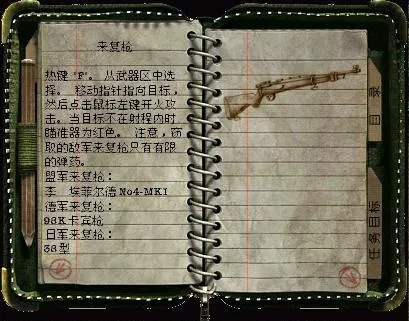 来复枪
热键 "F"。 从武器区中选
择。 移动指针指向目标，
然后点击鼠标左键开火攻
击。当目标不在射程内时
瞄准器为红色。 注意，窃
取的敌军来复枪只有有限
的弹药。
盟军来复枪：
李　埃菲尔德 No4-MK1
德军来复枪：
98K卡宾枪
日军来复枪：
38型
目录
任务目标